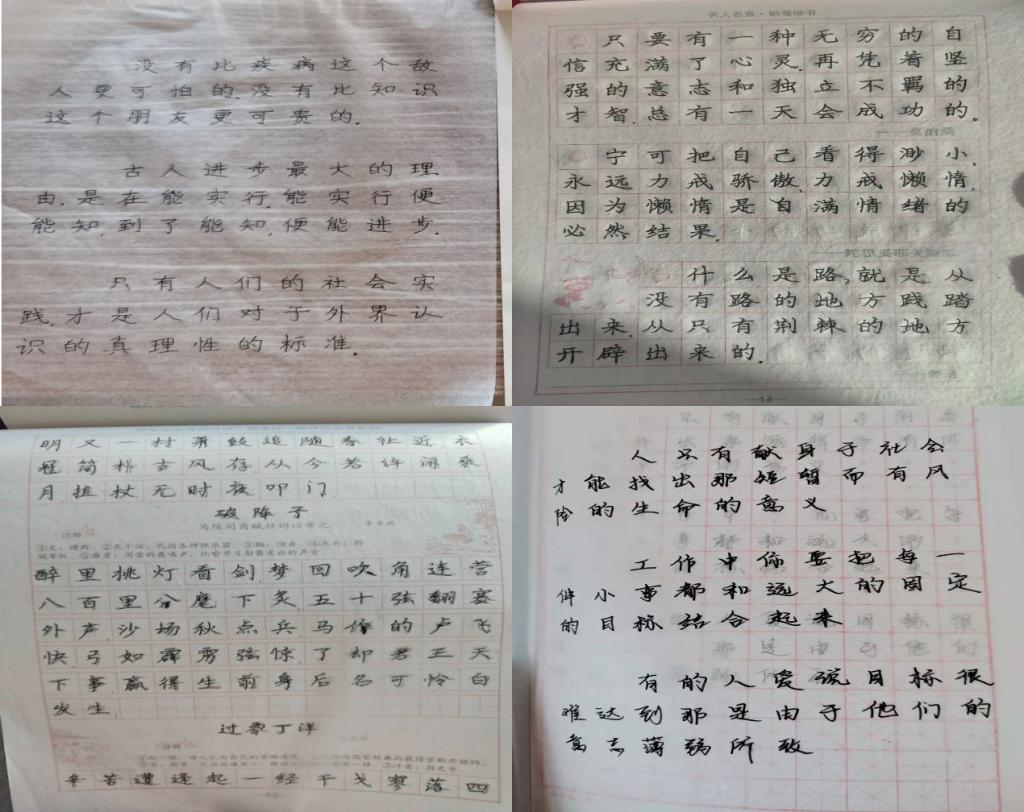 没有比疾病这个敌
人更可怕的.没有比知识
这个朋友更可贵的.
古人进步最大的理
由.是在能实行.能实行便
能知.到了能知.便能进步.
只有人们的社会实
践.才是人们对于外界认
识的真理性的标准.
名人名言·钢笔楷书
只要有一种无穷的自
信充满了心灵.再凭着坚
强的意志和独立不羁的
才智.总有一天会成功的.
——莫泊桑
宁可把自己看得渺小.
永远力戒骄傲.力戒懒惰.
因为懒惰是自满情绪的
必然结果.
什么是路,就是从
没有路的地方践踏
出来.从只有荆棘的地方
开辟出来的.
—14—
明又一村箫鼓追随春社近衣
冠简朴古风存从今若许闲乘
月拄杖无时夜叩门
破陈子
为陈同甫赋壮词以寄之
辛弃疾
注释
醉里挑灯看剑梦回吹角连营
八百里分麾下炙.五十弦翻塞
外声.沙场秋点兵.马作的卢飞
快.弓如霹雳弦惊.了却君王天
下事赢得生前身后名可怜白
发生.
过零丁洋
注释
辛苦遭逢起一经干戈寥落四
人只有献身于社会
才能找出那短暂而有风
险的生命的意义
工作中你要把每一
件小事都和远大的固定
的目标结合起来
有的人爱说目标很
难达到那是由于他们的
意志薄弱所致